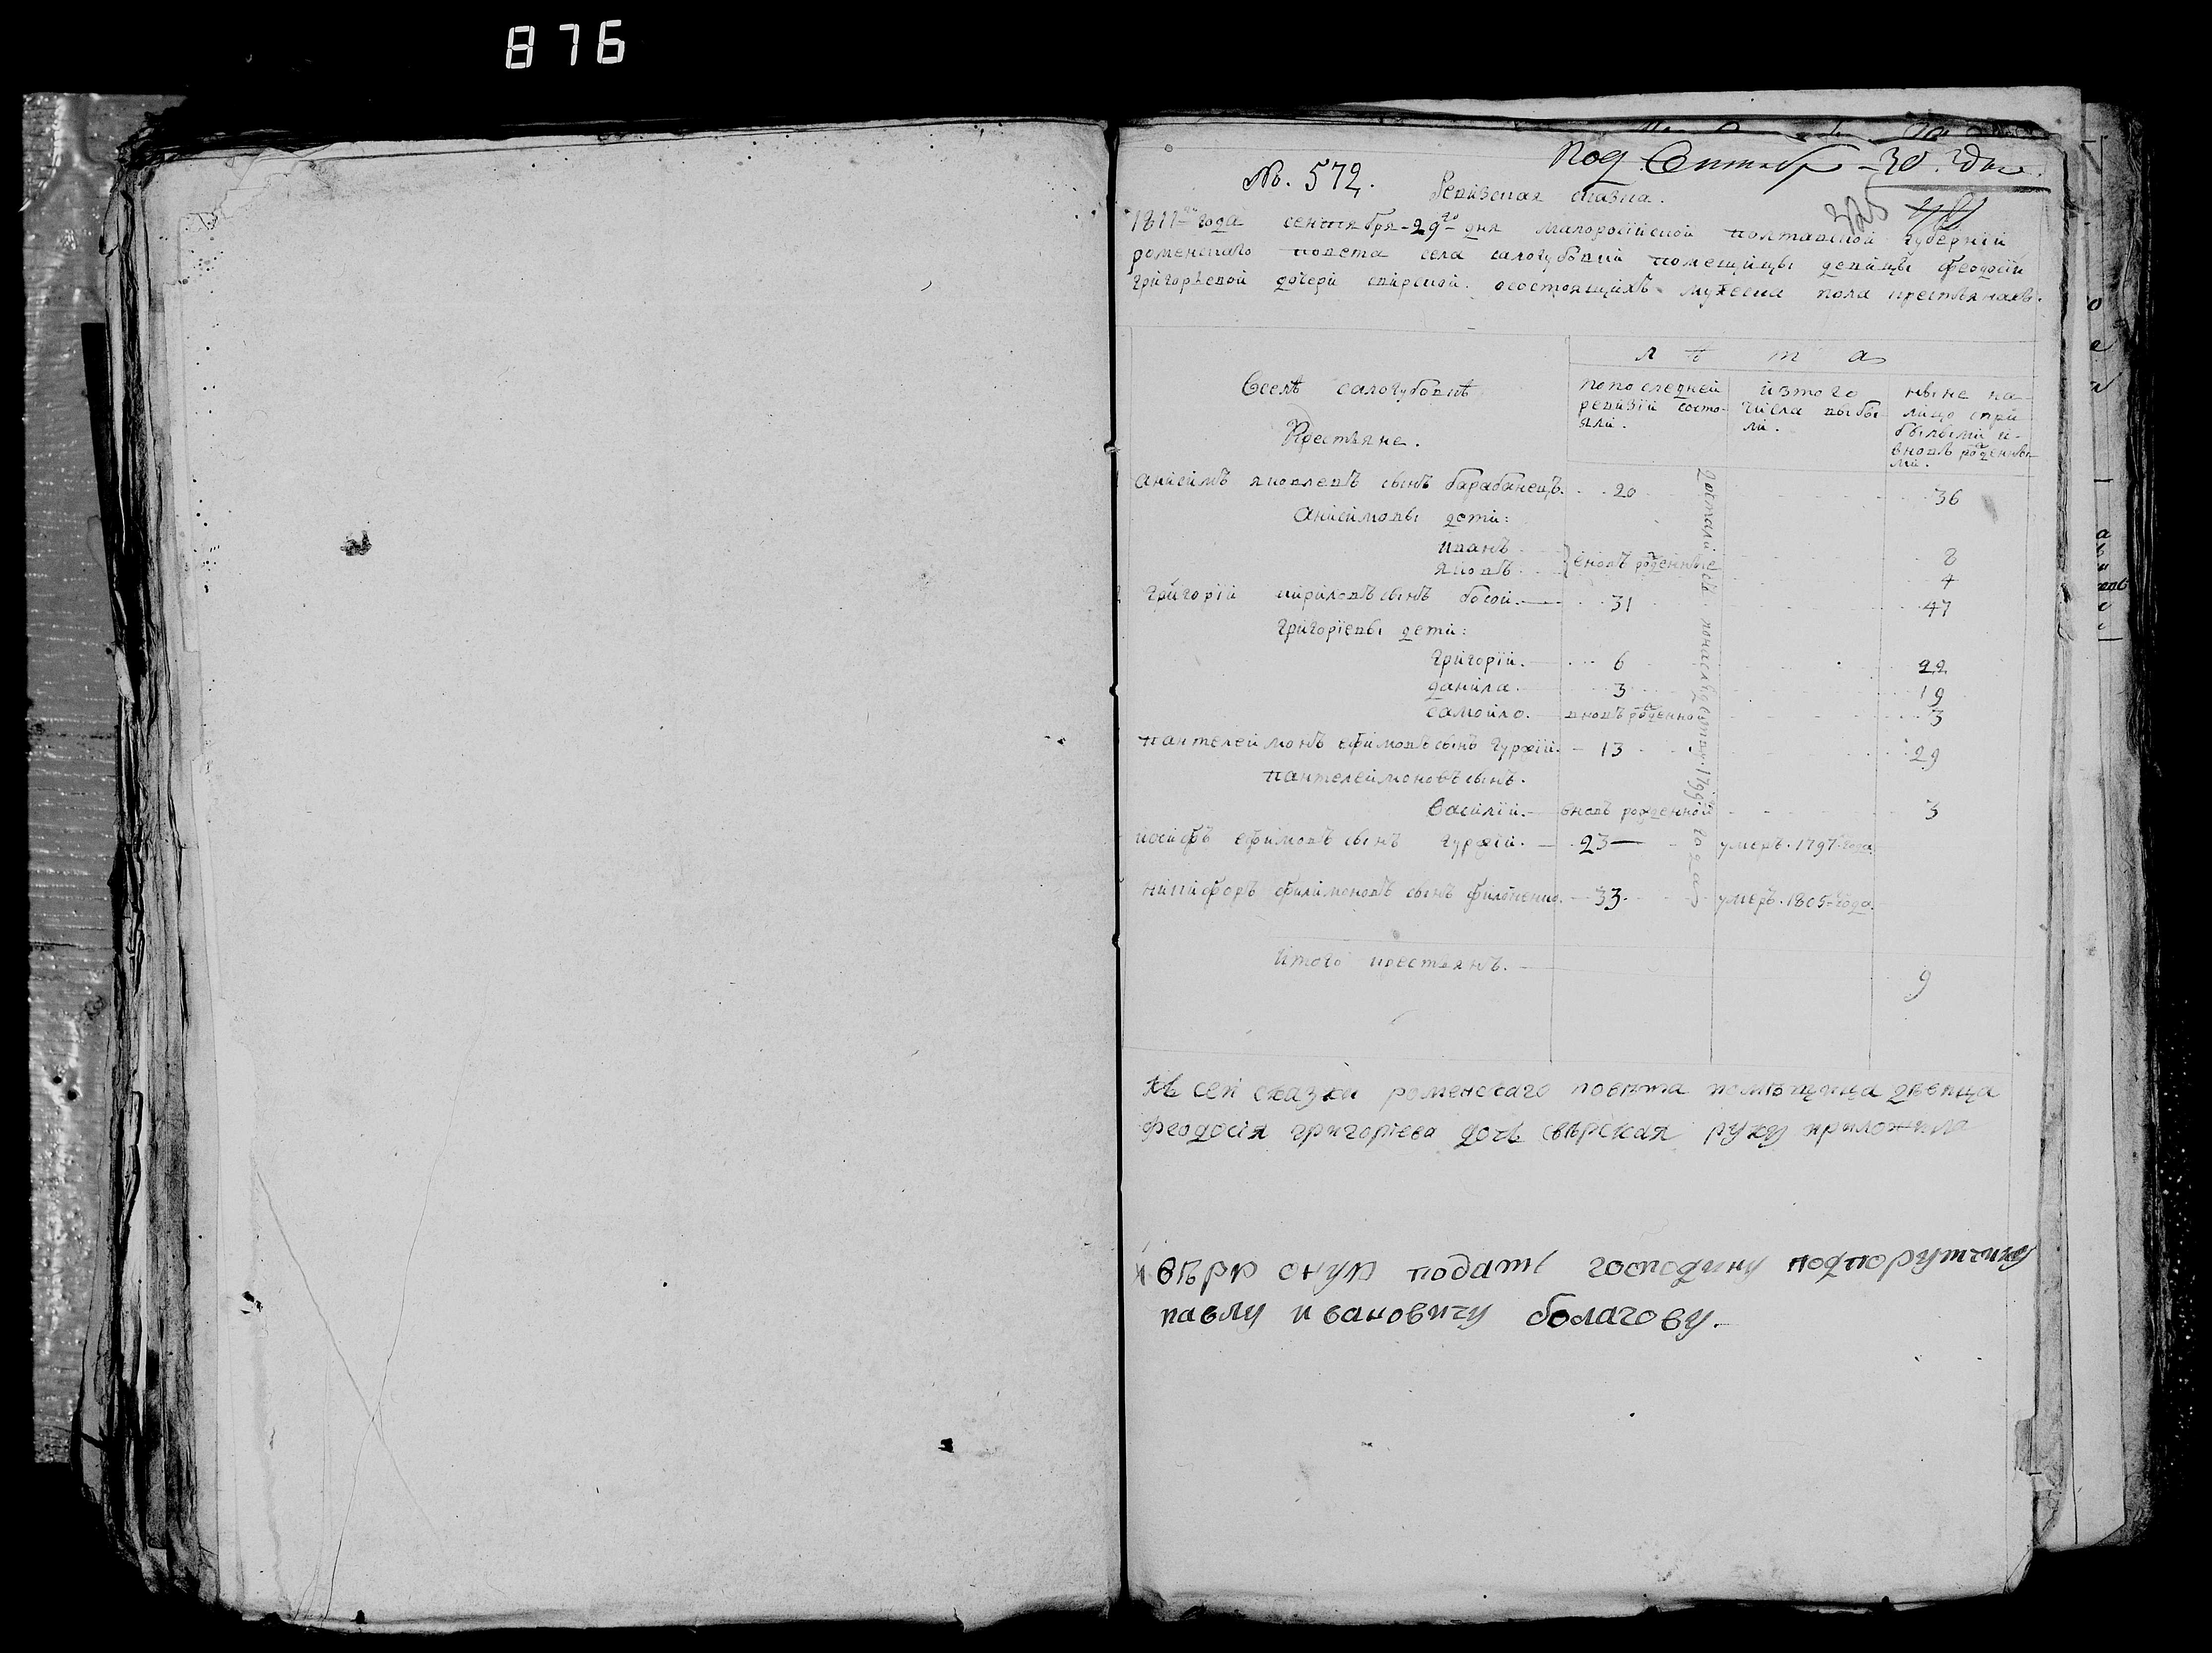 876
Под. Сентябр 30. дня.
№. 572.
Ревизская сказка.
1811-го года сентября-29го-дня малоросїйской полтавской губернїи
роменскаго повета села салогубовки помещицы девицы феодосїи
григорьевой дочери свирской. осостоящихъ мужеска пола крестьянахъ.
лѣта
Вселѣ салогубовкѣ
Крестьяне.
попоследней
ревизїи состо-
яли.
изтого
числа выбы-
ли.
ныне на-
лицо спри
былыми и-
вновь рожденны-
ми.
анисимъ яковлевъ сынъ барабанецъ. 20 36
анисимовы дети:
иванъ 8
яковъ } вновь рожденные 4
григорїй кириловъ сынъ босой. 31 47
григорїевы дети:
григорїй. 6 22
данила. 3 19
самойло. вновь рожденной 3
пантелеймонъ ефимовъ сынъ гуржїй. 13 29
пантелеймоновъ сынъ.
Василїй. вновь рожденной 3
иосифъ ефимовъ сынъ гуржїй. 23 умеръ. 1797 года.
никифоръ филимоновъ сынъ филоненко. 33. умеръ. 1805 года.
1799 года
Итого крестьянъ. 9
Къ сей сказки роменскаго повѣта помѣщица дѣвица
феодосїя григорїева дочь свѣрская руку приложила
и вѣрю оную подать господину подпорутчику
павлу ивановичу болагову.